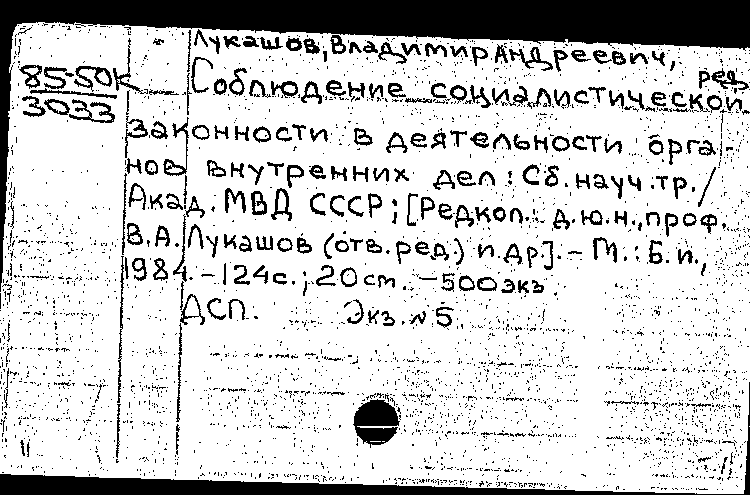 Лукашов, Владимир Андреевич, ред.
85-50К
3033
Соблюдение социалистической
законности в деятельности орга-
нов внутренних дел: Сб. науч. тр. /
Акад. МВД СССР; [Редкол.: д.ю.н., проф.
В.А. Лукашов (отв. ред.) и др]. - М.: Б.и.,
1984. - 124с.; 20 cm. - 500 экз.
ДСП. Экз. № 5